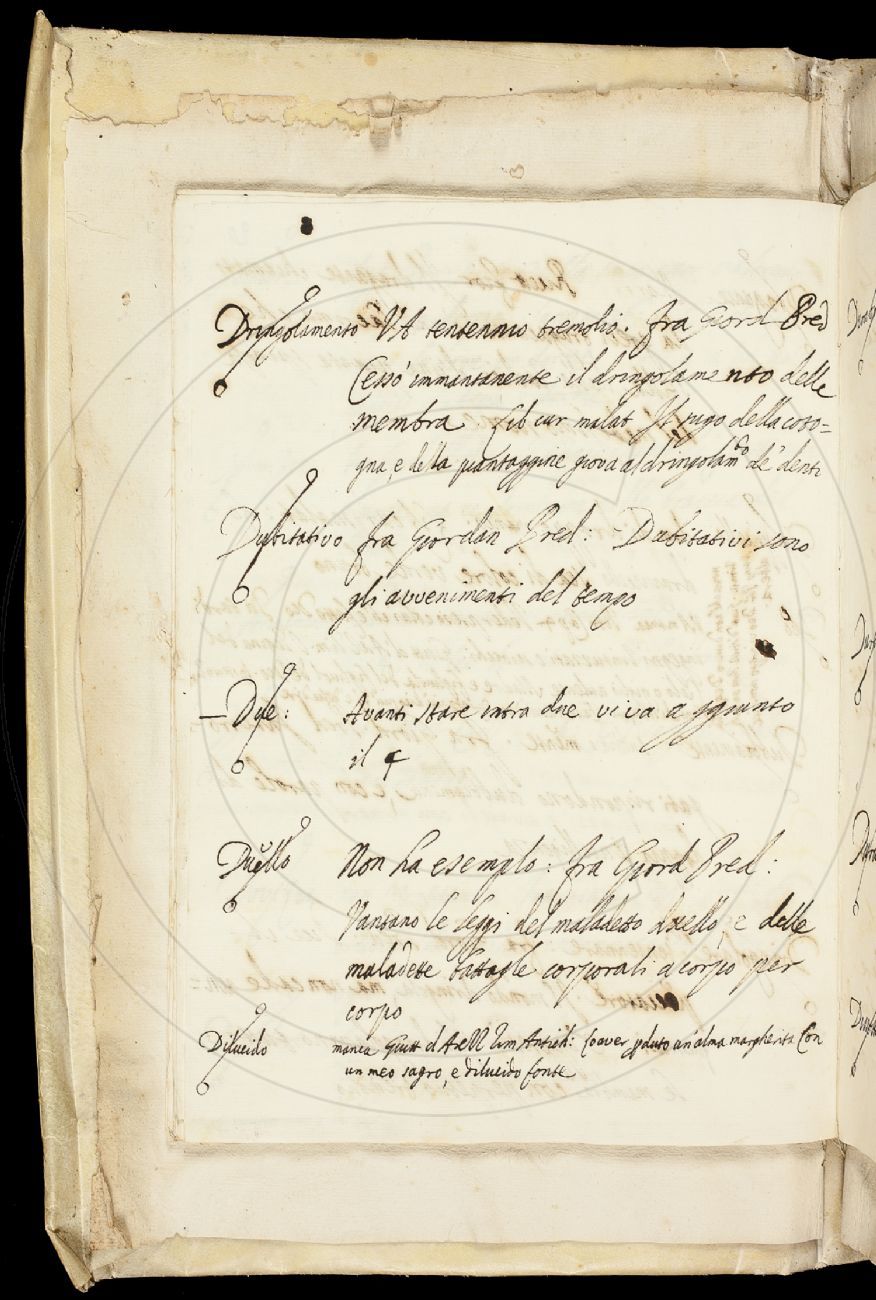 Dringolamento VA tentennio tremolio. fra Giord Pred
Cessò immantanente il dringolamento delle
membra. Lib cur malat Il sugo della coto=
gna, e della piantaggine giova al dringolam.to de' denti
Dubitativo fra Giordan Pred: Dubitativi sono
gli avvenimenti del tempo
— Due: Avanti stare intra due viva aggiunto
il
Duello Non ha esemplo: fra Giord Pred:
Vantano le leggi del maladetto duello, e delle
maladette battagle corporali a corpo per
corpo
Dilucido manca Guitt d'Arezz Rim Antich: Co aver pduto un alma margherita Con
un meo sagro, e dilucido fonte